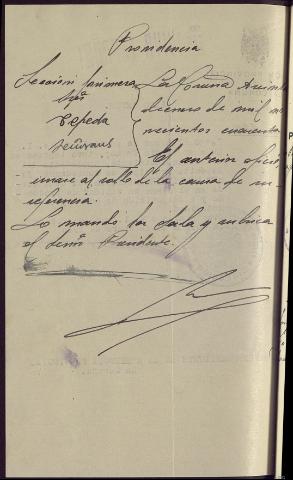 Providencia
Sección primera
Sres
Cepeda
La Coruña treinta
diciembre de mil no
vecientos cuarenta
El anterior oficio
únase al rollo de la causa de su
referencia.
Lo mandó la Sala y rubrica
el Señor Presidente.